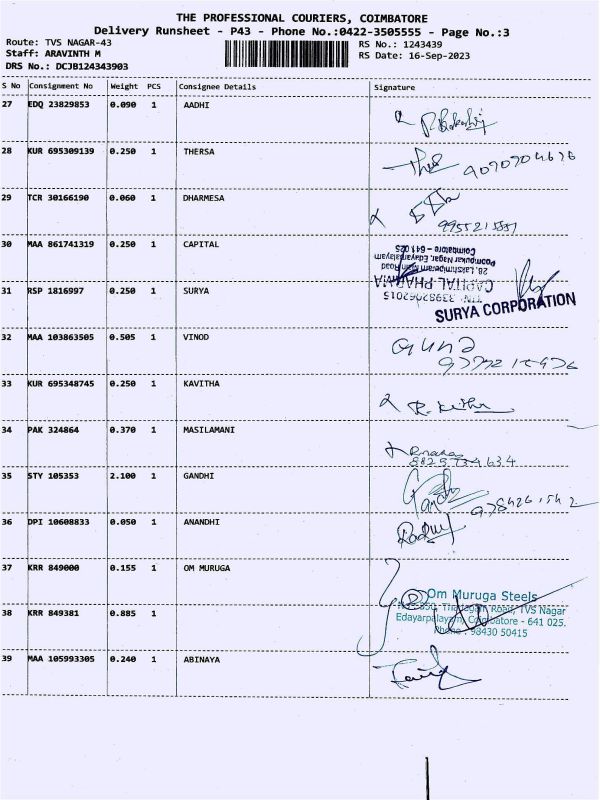 THE PROFESSIONAL COURIERS, COIMBATORE
Delivery Runsheet - P43 - Phone No.:0422-3505555 - Page No.:3
Route: TVS NAGAR-43
Staff: ARAVINTH M
DRS No.: DCJB124343903
RS No.: 1243439
RS Date: 16-Sep-2023
S No Consignment No Weight PCS Consignee Details Signature
27 EDQ 23829853 0.090 1 AADHI
28 KUR 695309139 0.250 1 THERSA
29 TCR 30166190 0.060 1 DHARMESA
30 MAA 861741319 0.250 1 CAPITAL
TIN: 33982062015
CAPITAL PHARMA
28, Lakshmipuram Main Road
Poompukar Nagar, Edayarpalayam
Coimbatore - 641 025
31 RSP 1816997 0.250 1 SURYA
SURYA CORPORATION
32 MAA 103863505 0.505 1 VINOD
Guna
33 KUR 695348745 0.250 1 KAVITHA
34 PAK 324864 0.370 1 MASILAMANI
35 STY 105353 2.100 1 GANDHI
36 DPI 10608833 0.050 1 ANANDHI
37 KRR 849000 0.155 1 OM MURUGA
Om Muruga Steels
Thadagam Road, TVS Nagar
Edayarpalayam, Coimbatore - 641 025.
Phone : 98430 50415
38 KRR 849381 0.885 1
39 MAA 105993305 0.240 1 ABINAYA